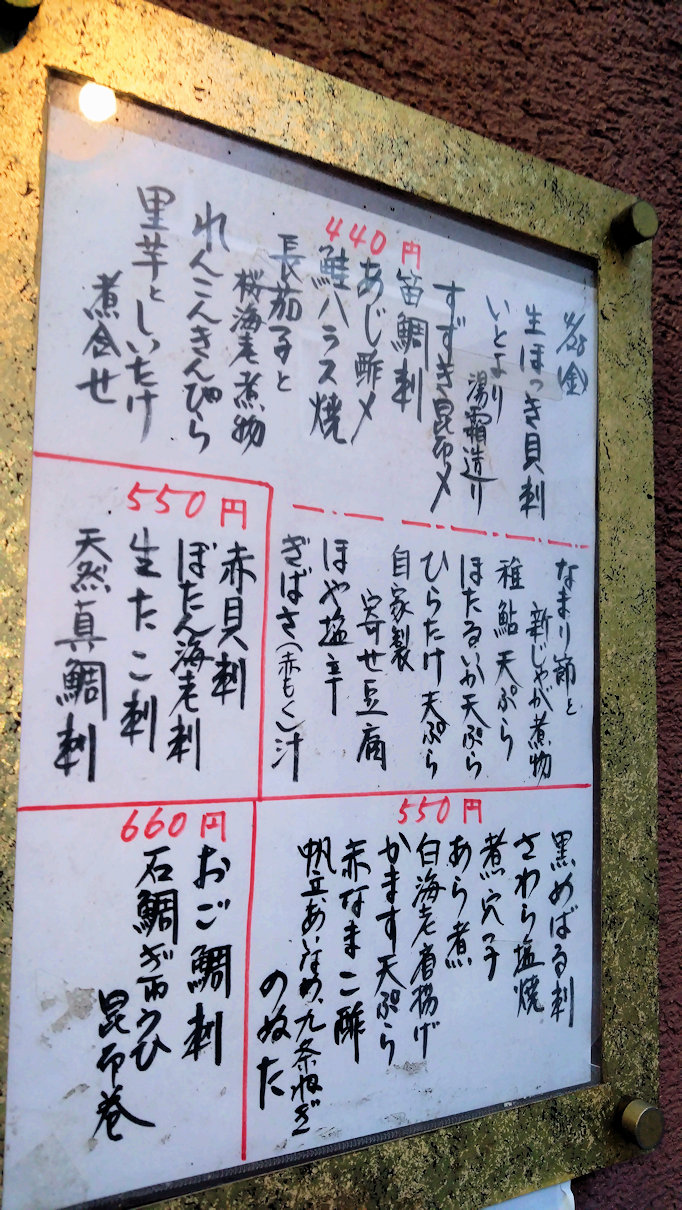 4/28(金)
440円
生ほっき貝刺
いとより
湯霜造り
すずき昆布〆
笛鯛刺
あじ酢〆
鮭ハラス焼
長茄子と
桜海老煮物
れんこんきんぴら
里芋としいたけ
煮合せ
なまり節と
新じゃが煮物
稚鮎天ぷら
ほたるいか天ぷら
ひらたけ天ぷら
自家製
寄せ豆腐
ほや塩辛
ぎばさ(赤もく)汁
550円
赤貝刺
ぼたん海老刺
生たこ刺
天然真鯛刺
550円
黒めばる刺
さわら塩焼
煮穴子
あら煮
白海老唐揚げ
かます天ぷら
赤なまこ酢
帆立、あいなめ、九条ねぎ
のぬた
660円
おご鯛刺
石鯛ぎゅうひ
昆布巻